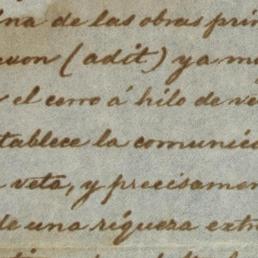 na de las obras prin
(adit) ya m
el cerro á hilo de ve
tablece la comunica
veta, y precisamen
de una riqueza extr